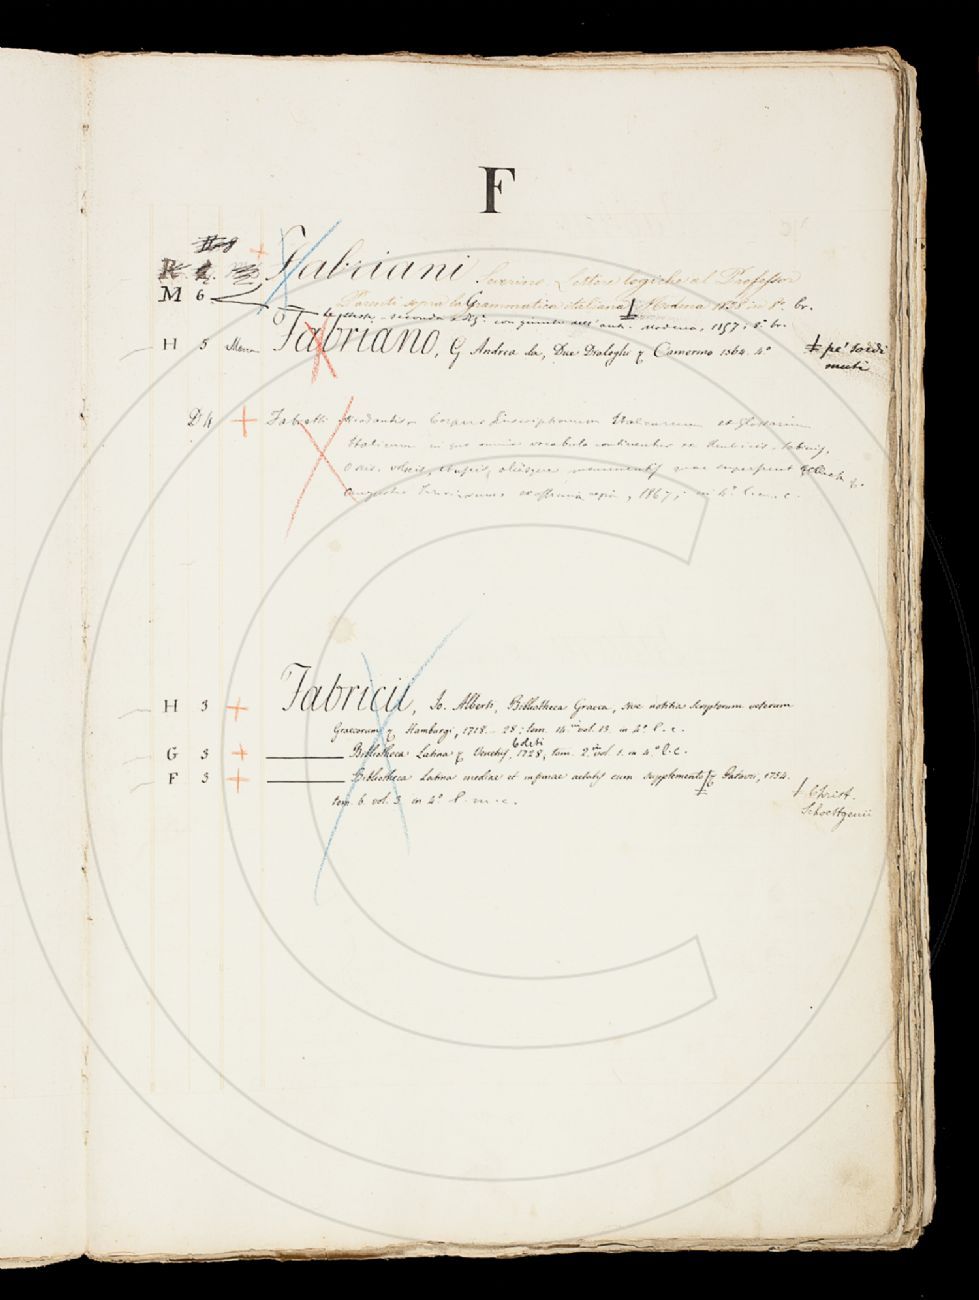 F
Fabriani Severino, Lettere logiche al Professor
M 6 Parenti sopra la Grammatica italiana ‡ Modena 1828 in 8.° br.
seconda ediz. Modena, 1857, 8° br.
H 5 Fabriano, G Andrea da, Due Dialoghi Camerino 1564. 4°
‡ pe' sordi
muti
D 4 + Fabretti Ariodantis Corpus Inscriptionum Italicarum et Glossarium
Italicum in quo omnia vocabula continentur ex Umbricis, Sabinis,
Oscis, Volscis, Etruscis, aliisque monumentis quae supersunt
Augustae Taurinorum, ex officina regia, 1867; in 4° l. m. c.
H 3 + Fabricii, Jo. Alberti, Bibliotheca Graeca, sive notitia Scriptorum veterum
Graecorum Hamburgi, 1718 - 28; tom. 14 vol. 13. in 4° l. c.
G 3 + Bibliotheca Latina Venetiis, 1728, tom. 2 vol. 1. in 4° l. c.
F 3 + Bibliotheca Latina mediae et infimae aetatis cum supplemento ‡ Patavii, 1754.
tom. 6. vol. 3. in 4° l. m. c.
‡ Christ.
Schoettgenii